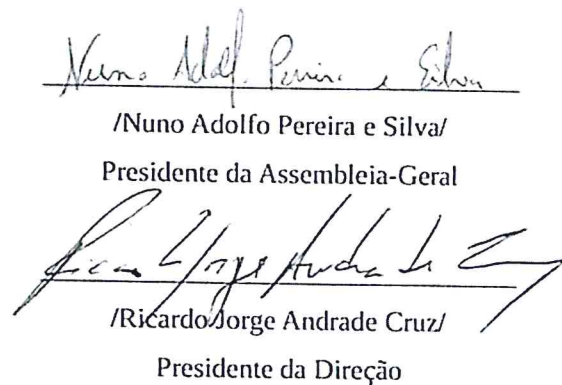 Nuno Adolf. Pereira e Silva
/Nuno Adolfo Pereira e Silva/
Presidente da Assembleia-Geral
Ricardo Jorge Andrade Cruz
/Ricardo Jorge Andrade Cruz/
Presidente da Direção